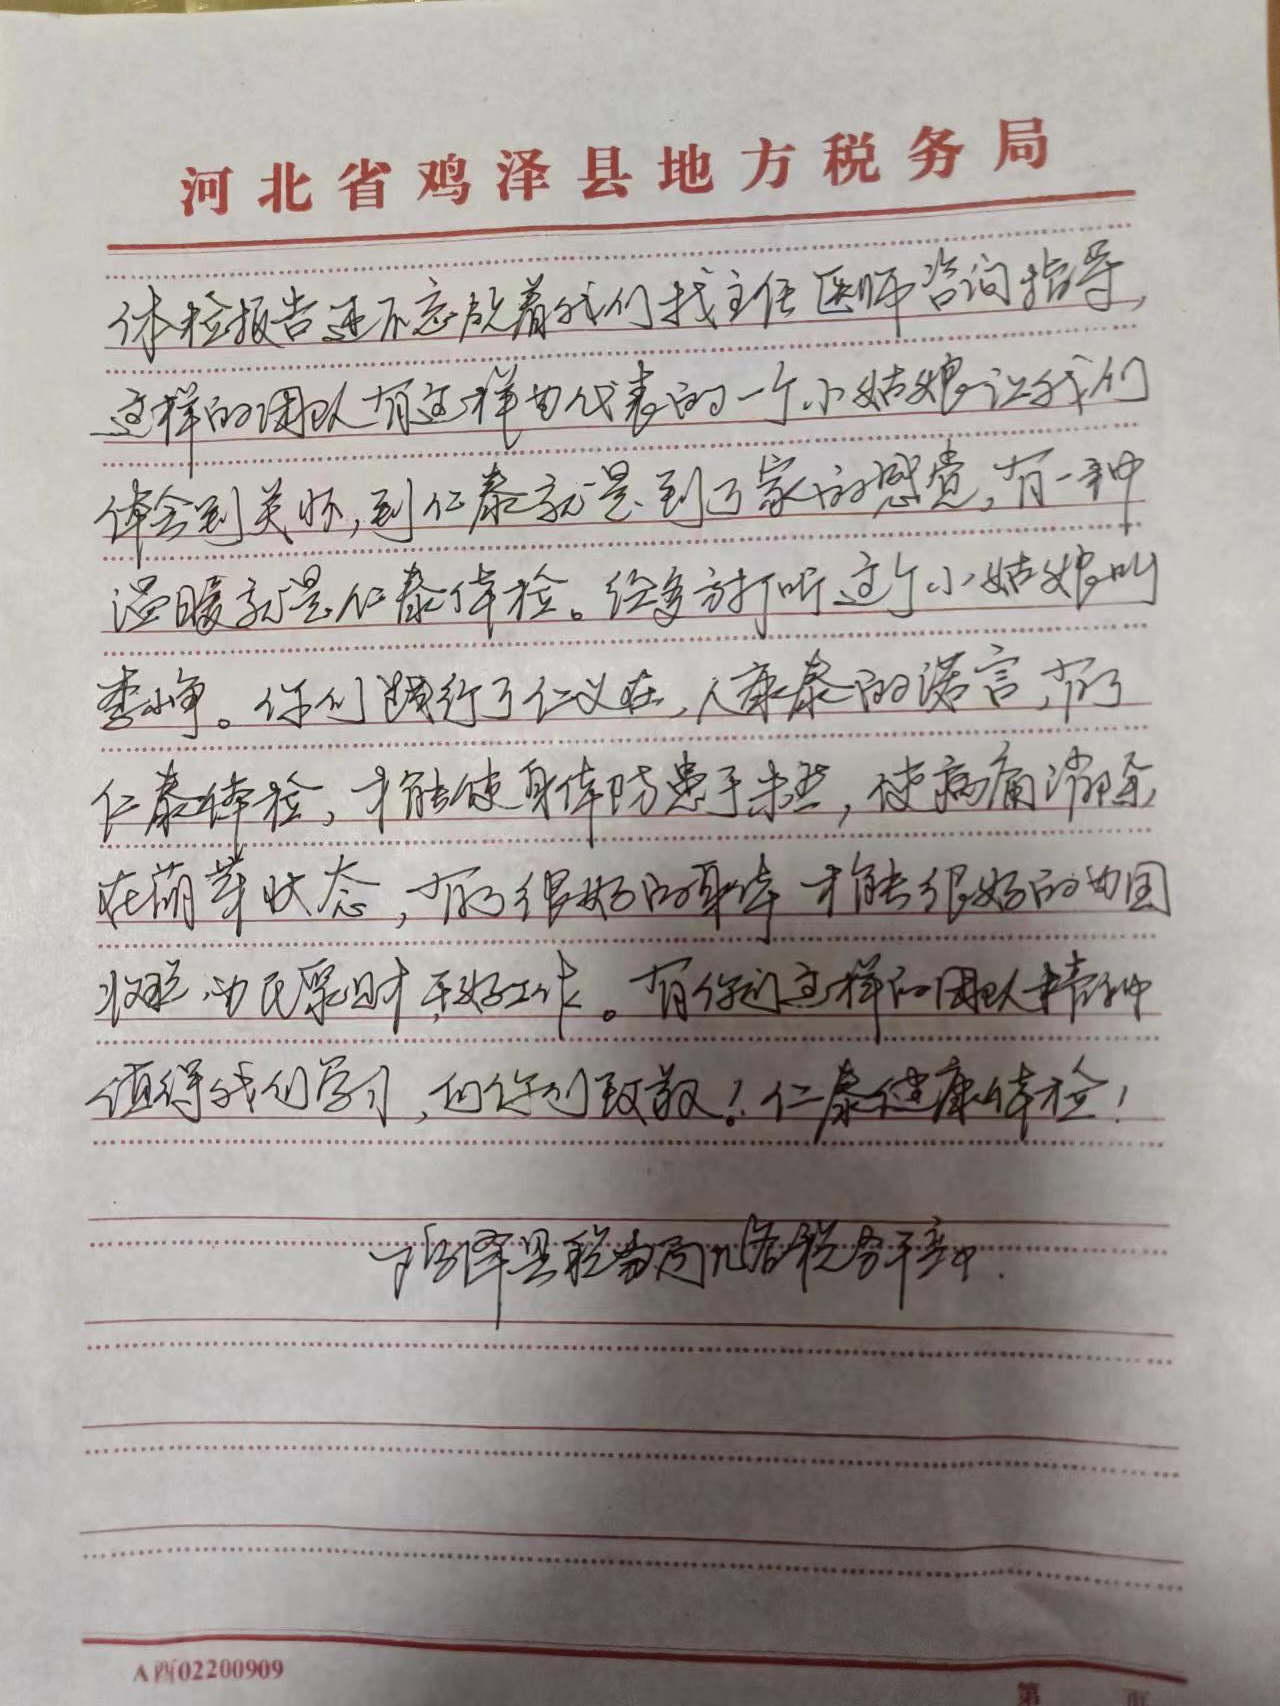 河北省鸡泽县地方税务局
体检报告还不忘领着我们找主任医师咨询指导,
这样的团队有这样为代表的一个小姑娘让我们
体会到关怀,到仁泰就是到了家的感觉,有一种
温暖就是仁泰体检。经多方打听这个小姑娘叫
李小峥。你们践行了仁义在,人康泰的诺言,有了
仁泰体检,才能使身体防患于未然,使病痛消除
在萌芽状态,有了很好的身体才能很好的为国
收税,为民聚财,干好工作。有你们这样的团队精神
值得我们学习,向你们致敬!仁泰健康体检!
鸡泽县税务局 税务干部
A西02200909
第 页